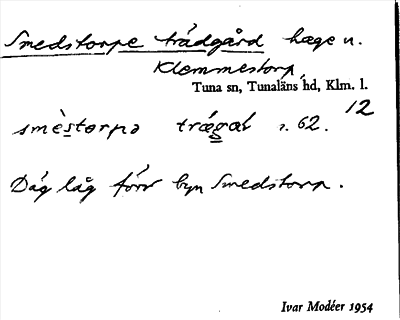 Smedstorpe trädgård hage u.
Klemmestorp,
Tuna sn, Tunaläns hd, Klm. l.
12
smèstorpə trǽgaŕ s. 62.
Där låg förr byn Smedstorp.
Ivar Modéer 1954